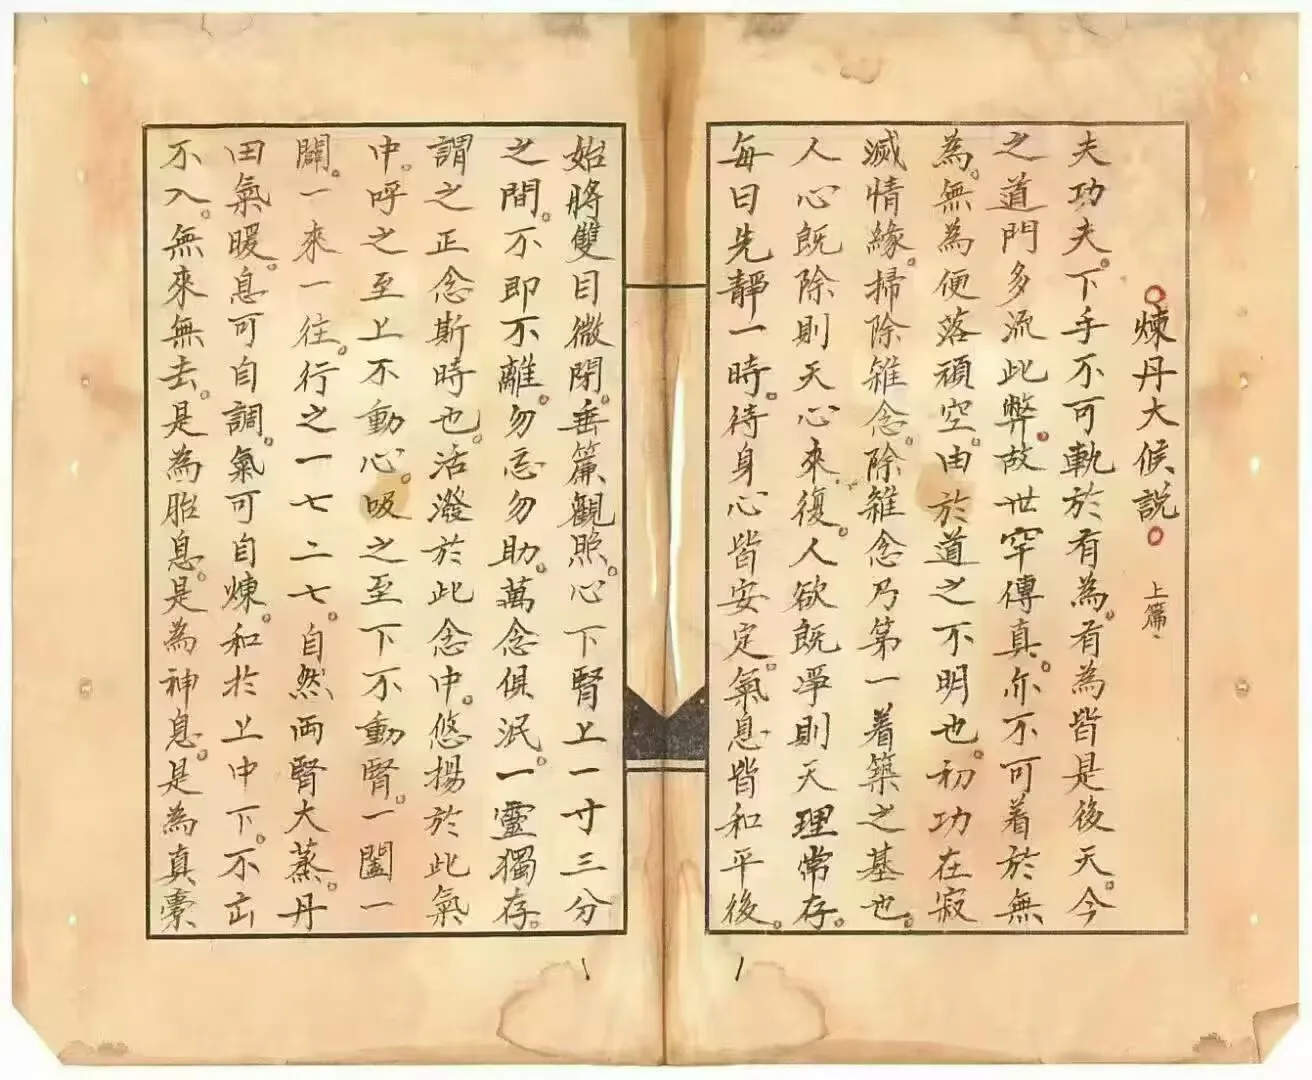 煉丹大候說。上篇、
夫功夫。下手不可軌於有為。有為皆是後天。今
之道門多流此弊。故世罕傳真。亦不可着於無
為。無為便落頑空。由於道之不明也。初功在寂
滅情緣。掃除雜念。除雜念乃第一着築之基也。
人心既除則天心來復。人欲既凈則天理常存。
每日先靜一時。待身心皆安定。氣息皆和平後。
始將雙目微閉。垂簾觀照。心下腎上一寸三分
之間。不即不離。勿忘勿助。萬念俱泯。一靈獨存。
謂之正念斯時也。活潑於此念中。悠揚於此氣
中。呼之至上不動心。吸之至下不動腎。一闔一
闢。一來一往。行之一七二七。自然両腎大蒸。丹
田氣暖。息可自調。氣可自煉。和扵上中下。不出
不入。無來無去。是為胎息。是為神息。是為真橐